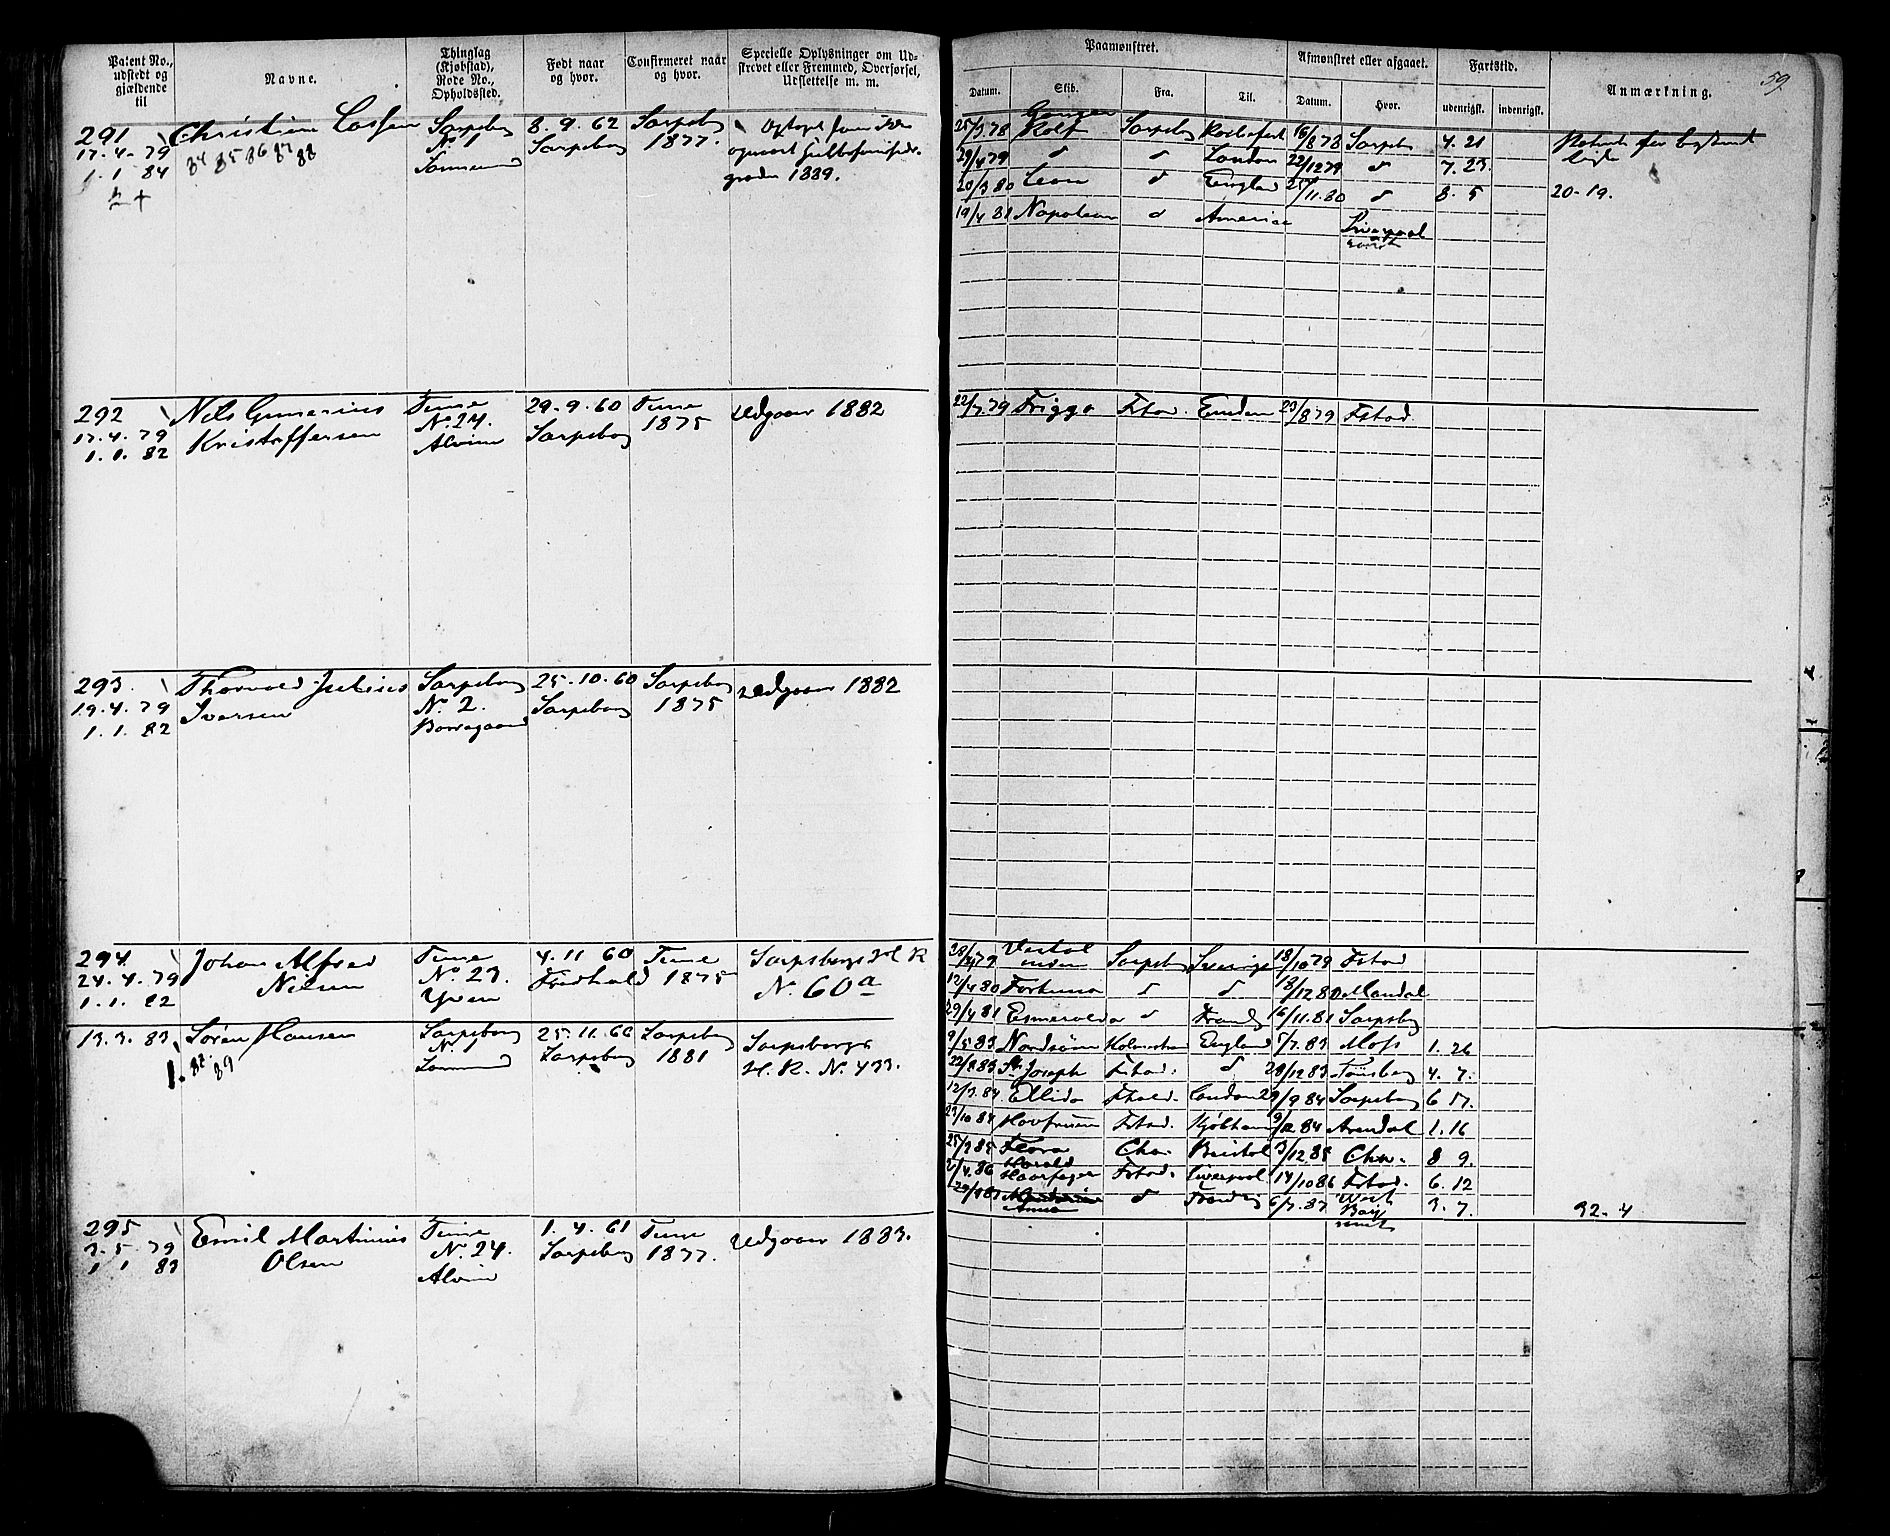 Patent No., udstedt og gjældende til
Navne.
Thinglag (Kjøbstad), Rode No., Opholdssted.
Født naar og hvor.
Confirmeret naar og hvor.
Specielle Oplysninger om Udskrevet eller Fremmed, Overførsel, Udslettelse m. m.
Paamønstret.
Datum.
Skib.
Fra.
Til.
Afmønstret eller afgaaet.
Datum.
Hvor.
Fartstid.
udenrigsk.
indenrigsk.
Anmærkning.
59
291
17.4.79
1.1.84
Christian
84 85 86 87 88
Sarpsborg
N. 1
8.9.62
Sarpsborg
Sarpsborg
1877.
1889.
25/3.78 Rolf Sarpsborg 16/8 78 Sarpsb 4. 21
29/4 79 d d London 22/12 79 d 7. 23.
20/3 80 Leon d Engld 25/11.80 d 8. 5 20-19.
19/4 81 Napoleon d America
Liverpool
rømt
292
17.4.79
1.1.82
Nils Gunerius
Kristoffersen
Tune
N. 24.
Alvim
29.9.60
Sarpsborg
Tune
1875
Udgaar 1882
22/7.79 Frigga Fstad. Emden 23/8 79 Fstad.
293.
19.4.79
1.1.82
Thorvald Julius
Iversen
Sarpsborg
N. 2.
Borregaard
25.10.60
Sarpsborg
Sarpsborg
1875
Udgaar 1882
294
24.4.79
1.1.82
Johan Alfred
Nilsen
Tune
No 23.
Yven
4.11 60
Fredhald
Tune
1875
Sarpsborgs H R
N. 60a
79 Sarpsb Sverige 18/10 79 Fstad
12/4 80 Fortuna d d 18/12 80 Mandal
29/4 81 Esmeralda d 16/11.81 Sarpsbg
13.3.83
Søren Hansen
1. 82. 89
Sarpsborg
N. 1
25.11.60
Sarpsborg
Sarpsborg
1881
Sarpsborgs
H. R. N. 433.
9/5 83 Nordsøen England /7.83 Moss 1. 26
22/8 83 St Joseph Fstad. d 28/12 83 Tønsberg 4. 7.
12/3.84 Ellida Fhald. London /9 84 Sarpsborg 6 17.
23/10 84 Havfruen Fstad. Kjøbhavn 9/12 84 Arendal 1. 16
25/3 85 Flora Cha. Bristol 3/12.85 Cha. 8 9.
2/4.86 Harald Haarfager Fstad. Liverpool 14/10 86 Fstad. 6. 12
Anna d 6/7.87 West Bay rømt 3. 7. 32-4
295
3.5.79
1 1 83
Emil Martinius
Olsen
Tune
N. 24.
Alvim
1.4.61
Sarpsborg
Tune
1877.
Udgaar 1883.